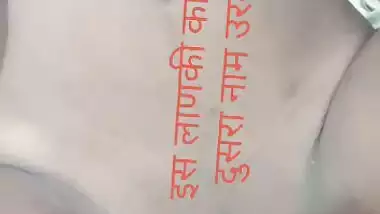 इस लाणकी का
दुसरा नाम